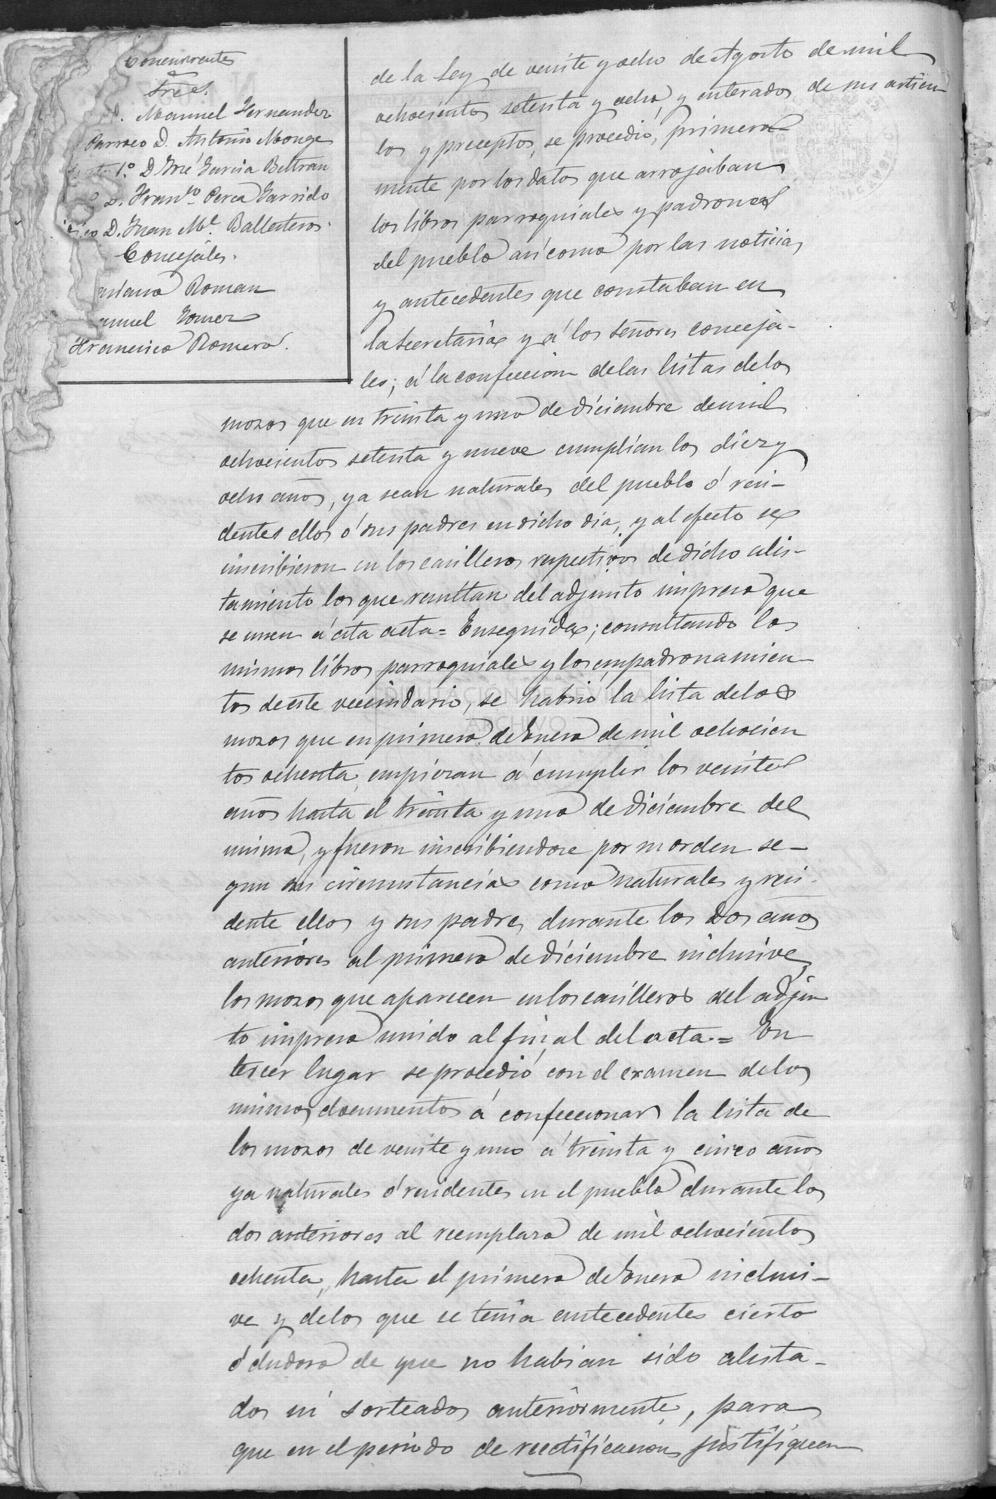 Concurrentes
Sres.
D. Manuel Fernandez
Parroco D. Antonio Monge
1º D. José Garcia Beltran
D. Franco. Perea Garrido
D. Juan Ml. Ballesteros.
Concejales.
Roman
Gomez
Francisco Romero.
de la Ley de veinte y ocho de Agosto de mil
ochocientos setenta y ocho, y enterados de sus articu
los y preceptos, se procedió, primera-
mente por los datos que arrojaban
los libros parroquiales y padrones
del pueblo asi como por las noticias
y antecedentes que constaban en
la Secretaria y á los señores conceja-
les; á la confeccion de las listas de los
mozos que en treinta y uno de diciembre de mil
ochocientos setenta y nueve cumplian los diez y
ocho años, ya sean naturales del pueblo ó resi-
dentes ellos ó sus padres en dicho dia, y al efecto se
inscribieron en los casilleros respectivos de dicho alis-
tamiento los que resultan del adjunto impreso que
se unen á esta acta = Enseguida; consultando los
mismos libros parroquiales y los empadronamien
tos de este vecindario, se habrió la lista de los
mozos que en primero de Enero de mil ochocien
tos ochenta, empiezan á cumplir los veinte
años hasta el treinta y uno de diciembre del
mismo, y fueron inscribiendose por su orden se-
gun sus circunstancias como naturales y resi-
dente ellos y sus padres durante los dos años
anteriores al primero de diciembre inclusive,
los mozos que aparecen en los casilleros del adjun
to impreso unido al final del acta. = En
tercer lugar se procedió con el examen de los
mismos documentos á confeccionar la lista de
los mozos de veinte y uno á treinta y cinco años
ya naturales ó residentes en el pueblo durante los
dos anteriores al reemplazo de mil ochocientos
ochenta, hasta el primero de Enero inclusi-
ve y de los que se tenia antecedentes cierto
ó dudoso de que no habian sido alista-
dos ni sorteados anteriormente, para
que en el periodo de rectificacion justifiquen
DIPUTACIÓN DE SEVILLA
ARCHIVO